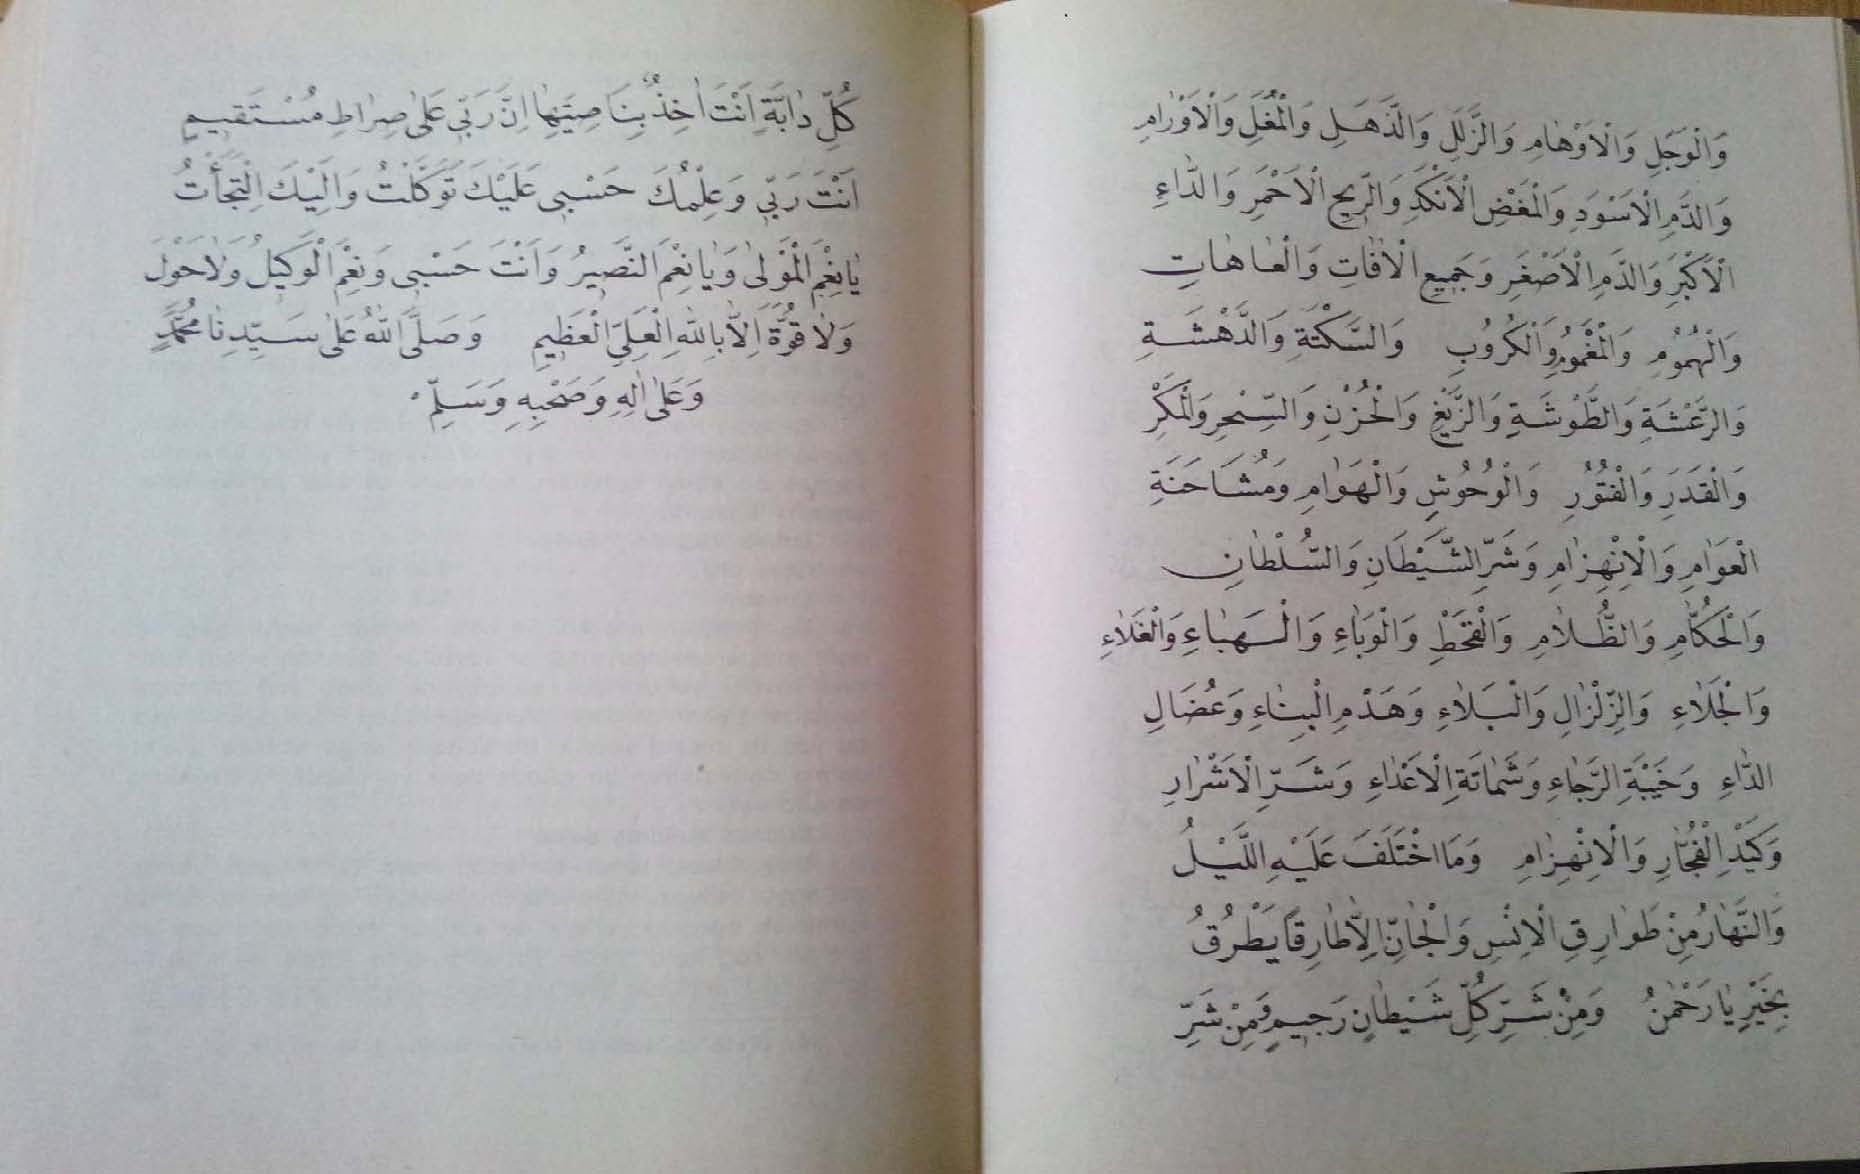 وَالْوَجَلِ وَالْاَوْهَامِ وَالزَّلَلِ وَالذَّهَلِ وَالْمُغُلِ وَالْاَوْرَامِ
وَالدَّمِ الْاَسْوَدِ وَالْمَغَضِ الْاَنْكَدِ وَالرِّيحِ الْاَحْمَرِ وَالدَّاءِ
الْاَكْبَرِ وَالدَّمِ الْاَصْغَرِ وَجَمِيعِ الْاٰفَاتِ وَالْعَاهَاتِ
وَالْهُمُوْمِ وَالْغُمُومِ وَالْكُرُوبِ وَالسَّكْتَةِ وَالدَّهْشَةِ
وَالرَّعْشَةِ وَالطَّوْشَةِ وَالزَّيْغِ وَالْحُزْنِ وَالسِّحْرِ وَالْمَكْرِ
وَالْقَدَرَ وَالْفُتُوُرِ وَالْوُحُوُشِ وَالْهَوَامِ وَمُشَاحَنَةِ
الْعَوَامِ وَالْاِنْهِزَامِ وَشَرِّ الشَّيْطَانِ وَالسُّلْطَانِ
وَالْحُكَّامِ وَالظُّلَامِ وَالْقَحْطِ وَالْوَبَاءِ وَالْهَبَاءِ وَالْغَلَاءِ
وَالْجَلَاءِ وَالزِّلْزَالِ وَالْبَلَاءِ وَهَدْمِ الْبِنَاءِ وَعُضَالِ
الدَّاءِ وَخَيْبَةِ الرَّجَاءِ وَشَمَاتَةِ الْاَعْدَاءِ وَشَرِّ الْاَشْرَارِ
وَكَيْدِ الْفُجَّارِ وَالْاِنْهِزَامِ وَمَا اخْتَلَفَ عَلَيْهِ اللَّيْلُ
وَالنَّهَارُ مِنْ طَوَارِقِ الْاِنْسِ وَالْجَانِّ اِلَّا طَارِقًا يَطْرُقُ
بِخَيْرٍ يَا رَحْمٰنُ وَمِنْ شَرِّ كُلِّ شَيْطَانٍ رَجِيمٍ وَمِنْ شَرِّ
كُلِّ دَابَّةٍ اَنْتَ اٰخِذٌ بِنَاصِيَتِهَا اِنَّ رَبِّي عَلٰى صِرَاطٍ مُسْتَقِيمٍ
اَنْتَ رَبِّي وَعِلْمُكَ حَسْبِي عَلَيْكَ تَوَكَّلْتُ وَاِلَيْكَ الْتِجَأْتُ
يَا نِعْمَ الْمَوْلٰى وَيَا نِعْمَ النَّصِيرُ وَاَنْتَ حَسْبِي وَنِعْمَ الْوَكِيلُ وَلَا حَوْلَ
وَلَا قُوَّةَ اِلَّا بِاللهِ الْعَلِيِّ الْعَظِيمِ وَصَلَّى اللهُ عَلٰى سَيِّدِنَا مُحَمَّدٍ
وَعَلٰى اٰلِهِ وَصَحْبِهِ وَسَلِّمْ